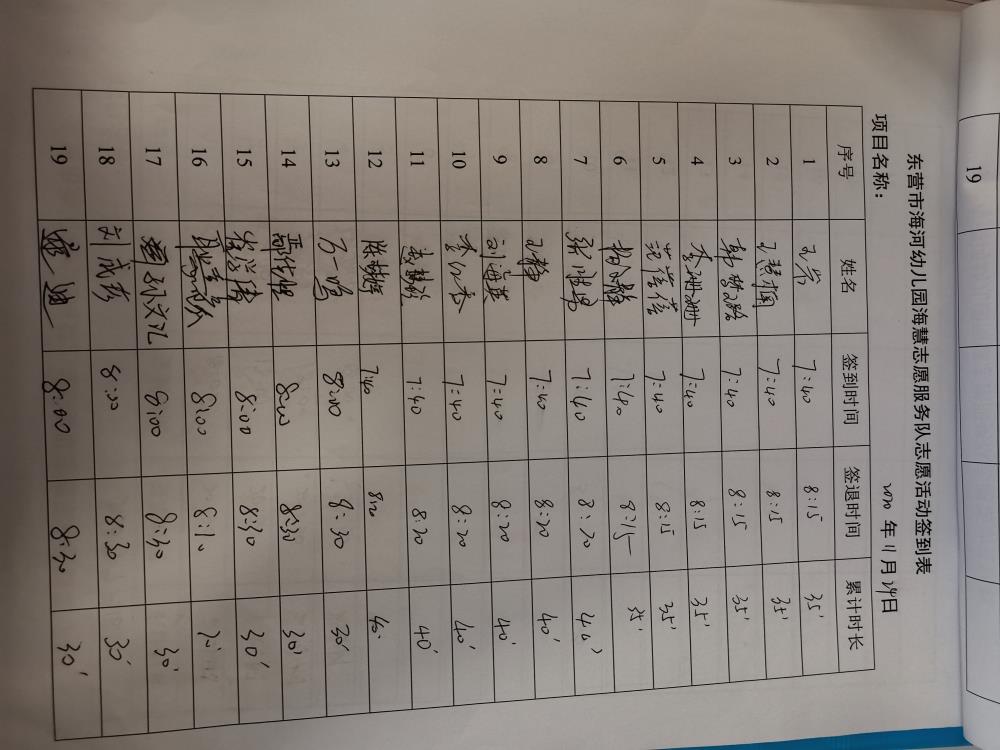 19
东营市海河幼儿园海慧志愿服务队志愿活动签到表
项目名称： 2020 年 11 月 24 日
序号 姓名 签到时间 签退时间 累计时长
1 7:40 8:15 35'
2 王慧 7:40 8:15 35'
3 7:40 8:15 35'
4 李珊珊 7:40 8:15 35'
5 范蓓蓓 7:40 8:15 35'
6 7:40 8:15 35'
7 7:40 8:20 40'
8 王静 7:40 8:20 40'
9 刘海英 7:40 8:20 40'
10 7:40 8:20 40'
11 7:40 8:20 40'
12 7:40 8:20 40'
13 万一鸣 8:00 8:30 30'
14 8:00 8:30 30'
15 8:00 8:30 30'
16 8:00 8:10
17 8:00 8:30 30'
18 刘成珍 8:00 8:30 30'
19 8:00 8:30 30'